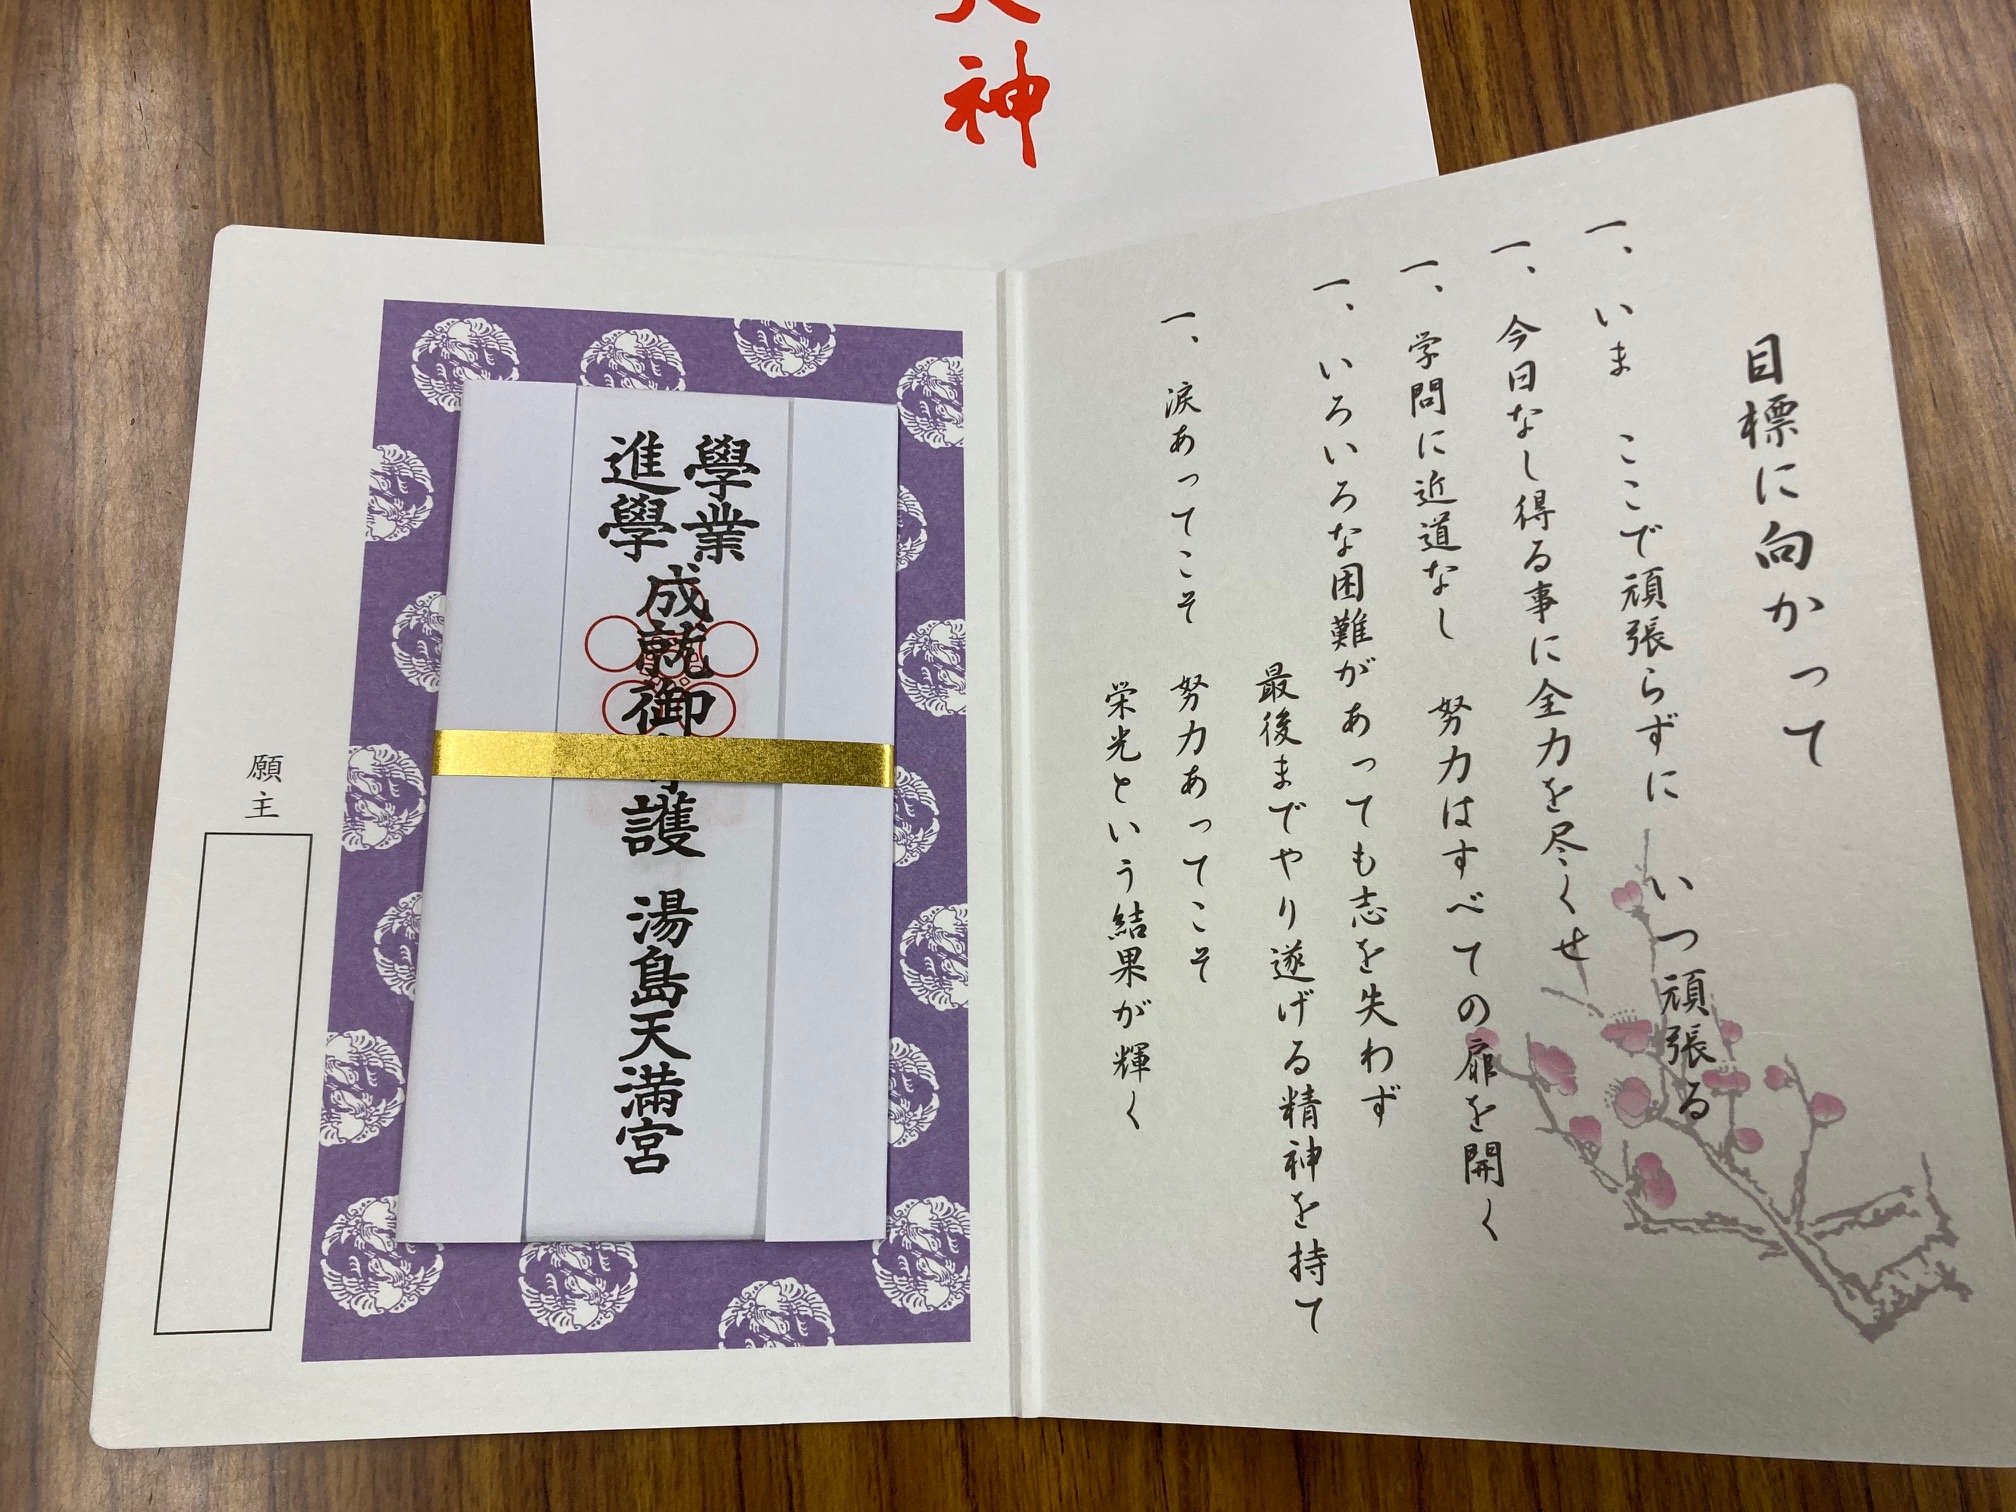 神
目標に向かって
一、いま　ここで頑張らずに　いつ頑張る
一、今日なし得る事に全力を尽くせ
一、学問に近道なし　努力はすべての扉を開く
一、いろいろな困難があっても志を失わず
最後までやり遂げる精神を持て
一、涙あってこそ　努力あってこそ
栄光という結果が輝く
學業
進學
成就御
護
湯島天満宮
願主